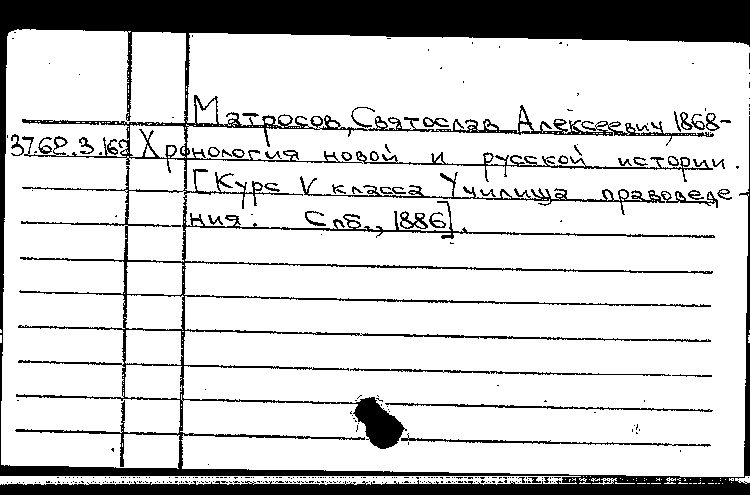 Матросов, Святослав Алексеевич, 1868-
37.62.3.162 Хронология новой и русской истории.
[Курс V класса Училища правоведе-
ния. Спб., 1886].